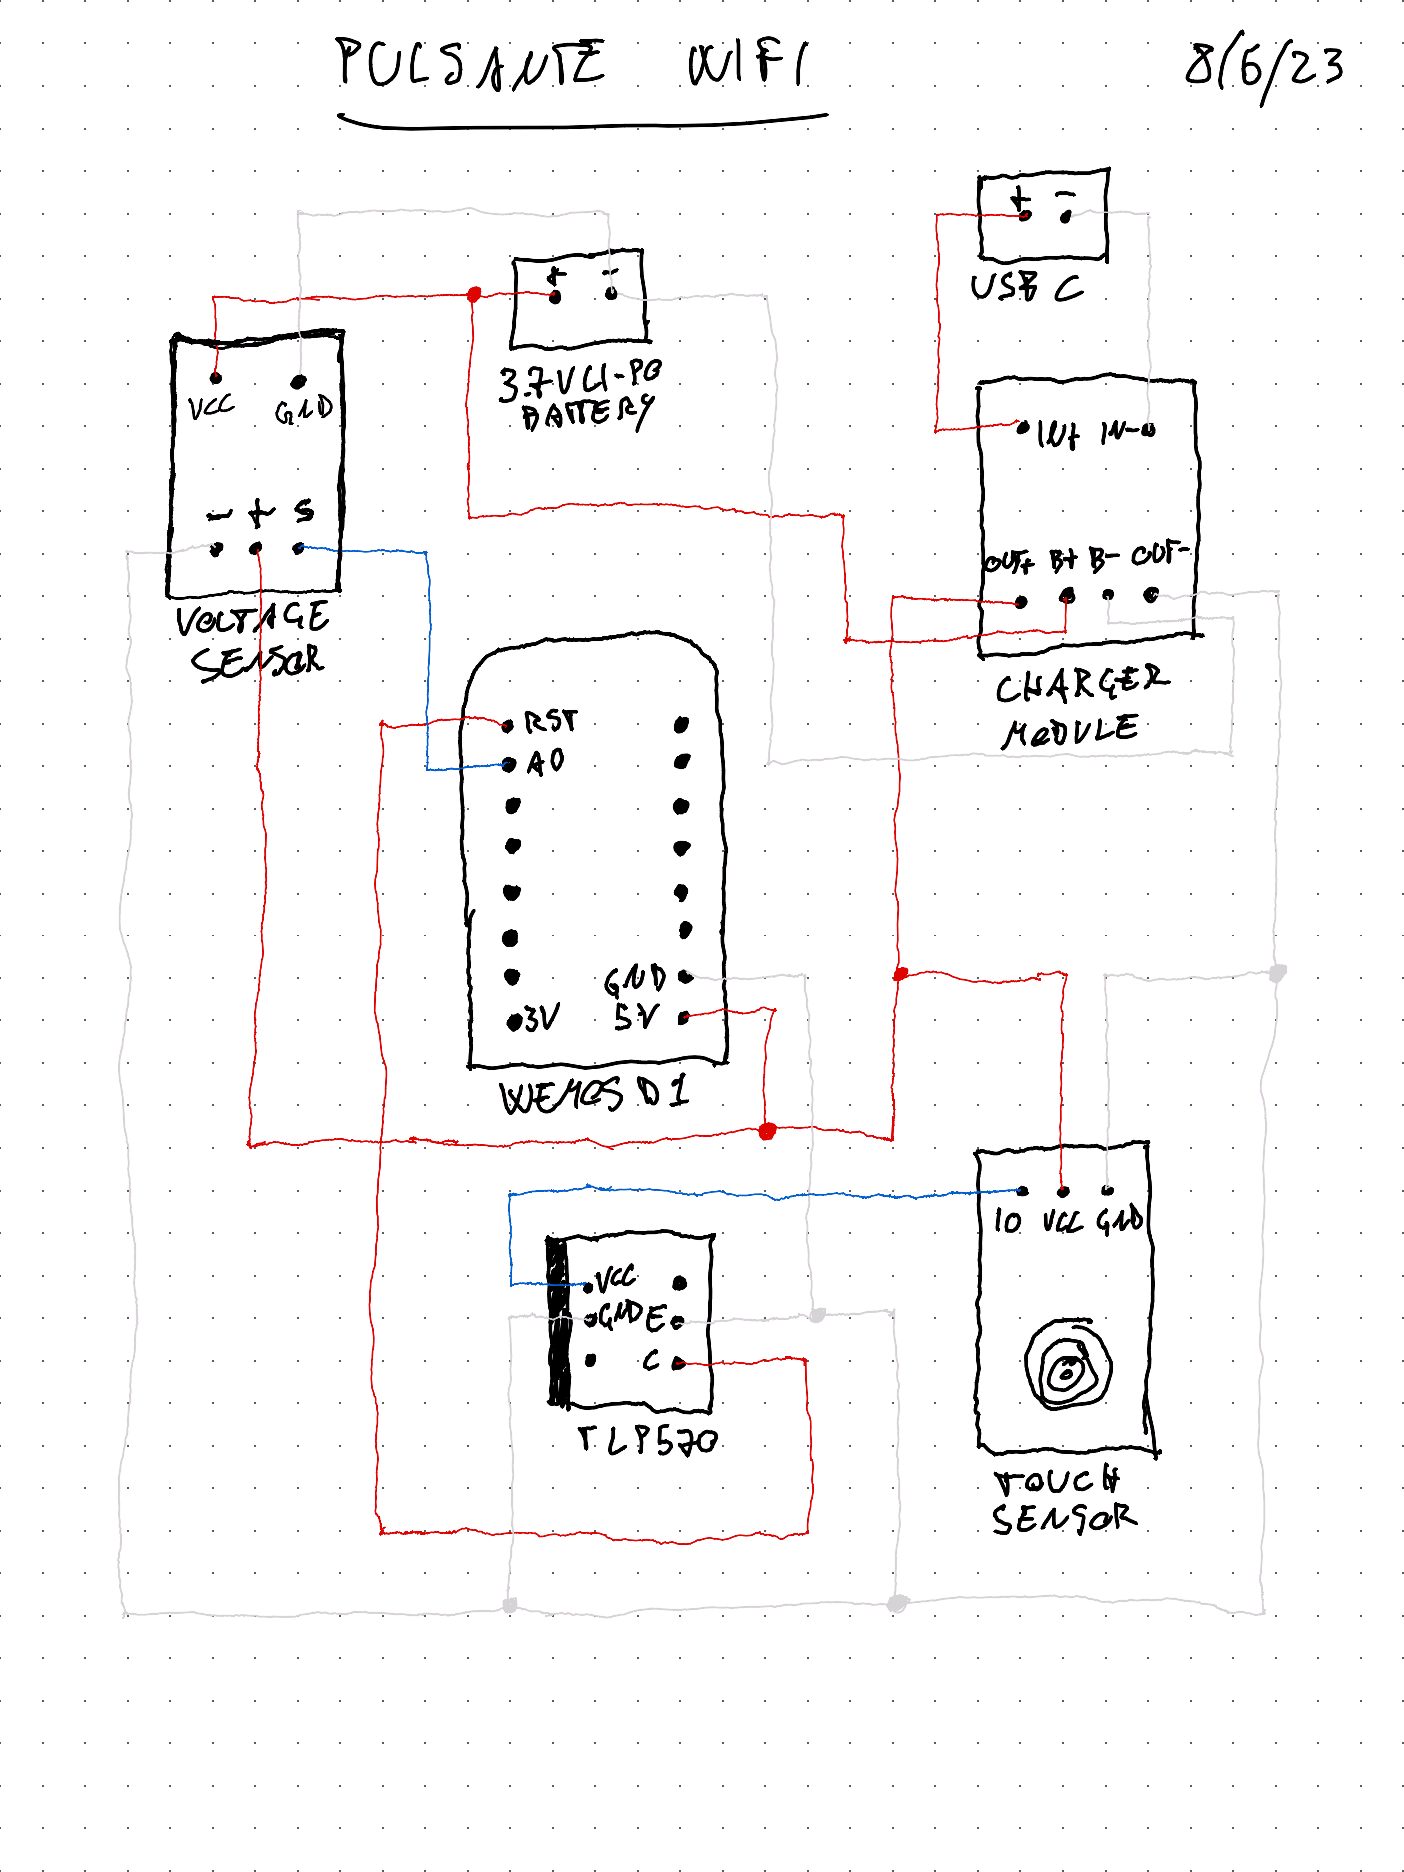 PULSANTE WIFI
8/6/23
+ -
USB C
+ -
3.7V LI-PO
BATTERY
VCC GND
- + S
VOLTAGE
SENSOR
IN+ IN-
OUT+ B+ B- OUT-
CHARGER
MODULE
RST
A0
GND
3V 5V
WEMOS D1
IO VCC GND
TOUCH
SENSOR
VCC
GND E
C
TLP570